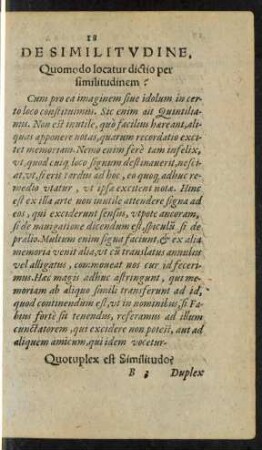 18
DE SIMILITVDINE,
Quomodo locatur dictio per
similitudinem?
Cum pro ea imaginem siue idolum in cer
to loco constituimus. Sic enim ait Quintilia-
nus. Non est inutile, quò facilius hæreant, ali-
quas apponere notas, quarum recordatio exci-
tet memoriam. Nemo enim ferè tam infelix,
vt, quod cuiq; loco signum destinauerit, nesci-
at, vt, si erit tardus ad hoc, eo quoq; adhuc re-
medio vtatur, vt ipsæ excitent notæ. Hinc
est ex illa arte non inutile attendere signa ad
eos, qui exciderunt sensus, vtpote ancoram,
si de nauigatione dicendum est, spiculũ si de
prælio. Multum enim signa faciunt, & ex alia
memoria venit alia, vt cũ translatus annulus
vel alligatus, commoneat nos cur id feceri-
mus. Hæc magis adhuc astringunt, qui me-
moriam ab aliquo simili transferunt ad id,
quod continendum est, vt in nominibus, si Fa-
bius fortè sit tenendus, referamus ad illum
cunctatorem, qui excidere non potest, aut ad
aliquem amicum, qui idem vocetur.
Quotuplex est Similitudo?
B 3 Duplex